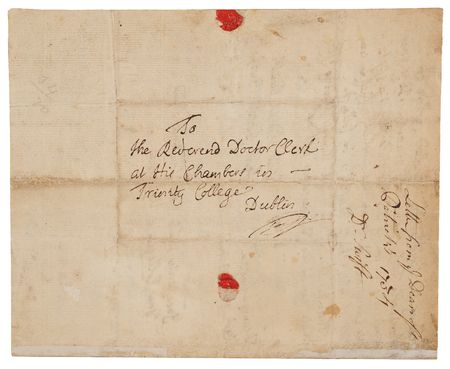 To
the Reverend Doctor Clerk
at His Chambers in
Trinity College
Dublin
Letter from ye Dean of St
Patrick's 1734
Dr Swift